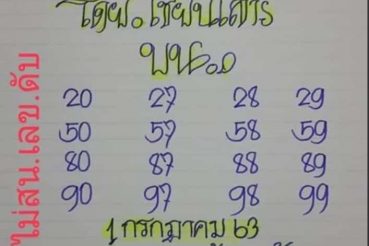 โดย.เซียนเสาร์
บน.๑
20 27 28 29
50 57 58 59
80 87 88 89
90 97 98 99
1 กรกฎาคม 63
ไม่สน.เลข.ดับ